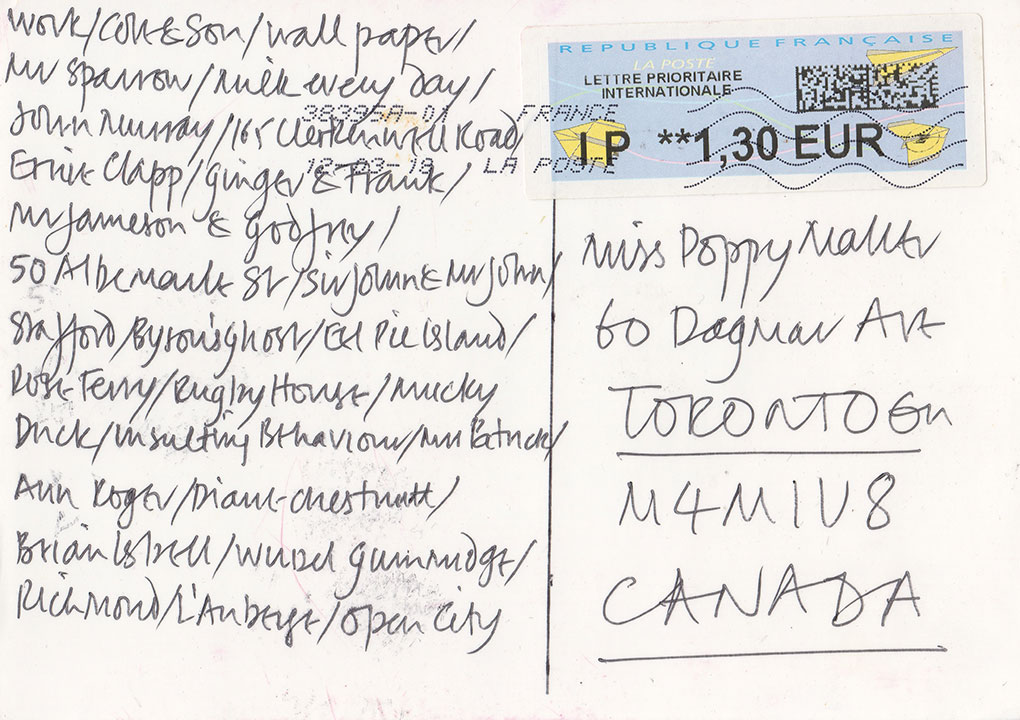 Work/Cole & Son/wall paper/
Mr Sparrow/milk every day/
John Murray/165 Clerkenwell Road/
Ernie Clapp/Ginger & Frank/
Mr Jameson & Godfrey/
50 Albemarle St/Sir John & Mr John/
Stafford/Byron's ghost/Eel Pie Island/
Rose Ferry/Rugby House/Mucky
Duck/Insulting Behaviour/Mr Patrick/
Ann Roger/Diane-chestnutt/
Brian Isbell/Wurzel Gummidge/
Richmond/L'Auberge/Open City
REPUBLIQUE FRANÇAISE
LA POSTE
LETTRE PRIORITAIRE
INTERNATIONALE
IP **1,30 EUR
38395A-01 FRANCE
LA POSTE
Miss Poppy
60 Dagmar Ave
TORONTO On
M4M1V8
CANADA